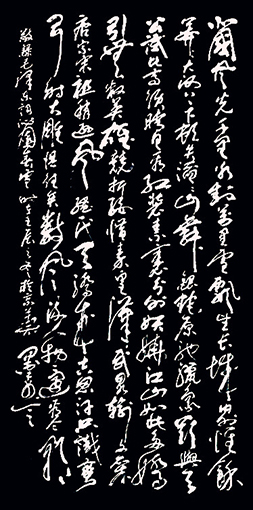 北國風光千里冰封萬里雪飄望長城內外惟餘
莽莽大河上下頓失滔滔山舞銀蛇原馳蠟象欲與天
公試比高須晴日看紅裝素裹分外妖嬈江山如此多嬌
引無數英雄競折腰惜秦皇漢武略輸文采
唐宗宋祖稍遜風騷一代天驕成吉思汗只識彎
弓射大雕俱往矣數風流人物還看今朝
敬錄毛澤東詞沁園春雪